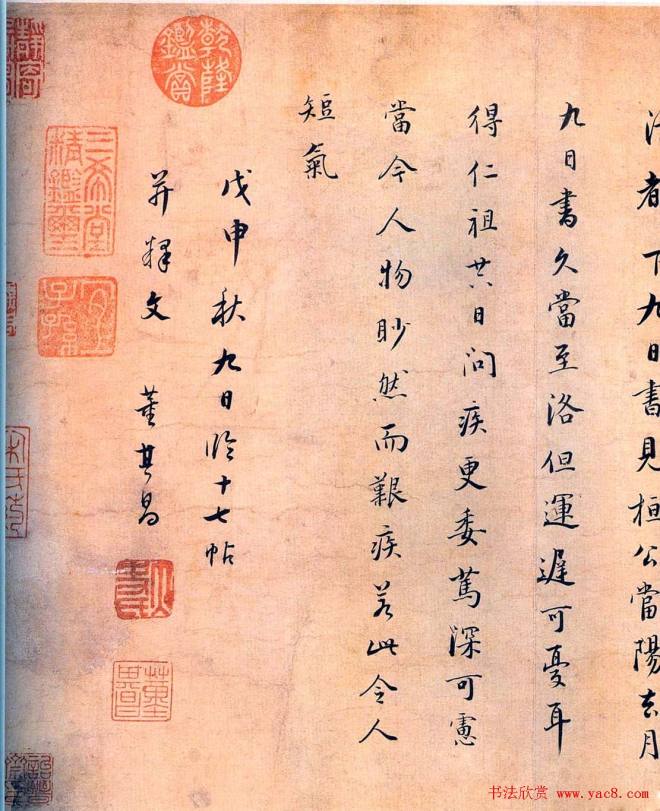 者下九日書見桓公當陽去月
九日書久當至洛但運遲可憂耳
得仁祖廿六日問疾更委篤深可憲
當今人物眇然而艱疾若此令人
短氣
戊申秋九日臨十七帖
并釋文 董其昌
乾隆鑑賞
三希堂精鑑璽
宜子孫
董其昌
書法欣赏 www.yac8.com